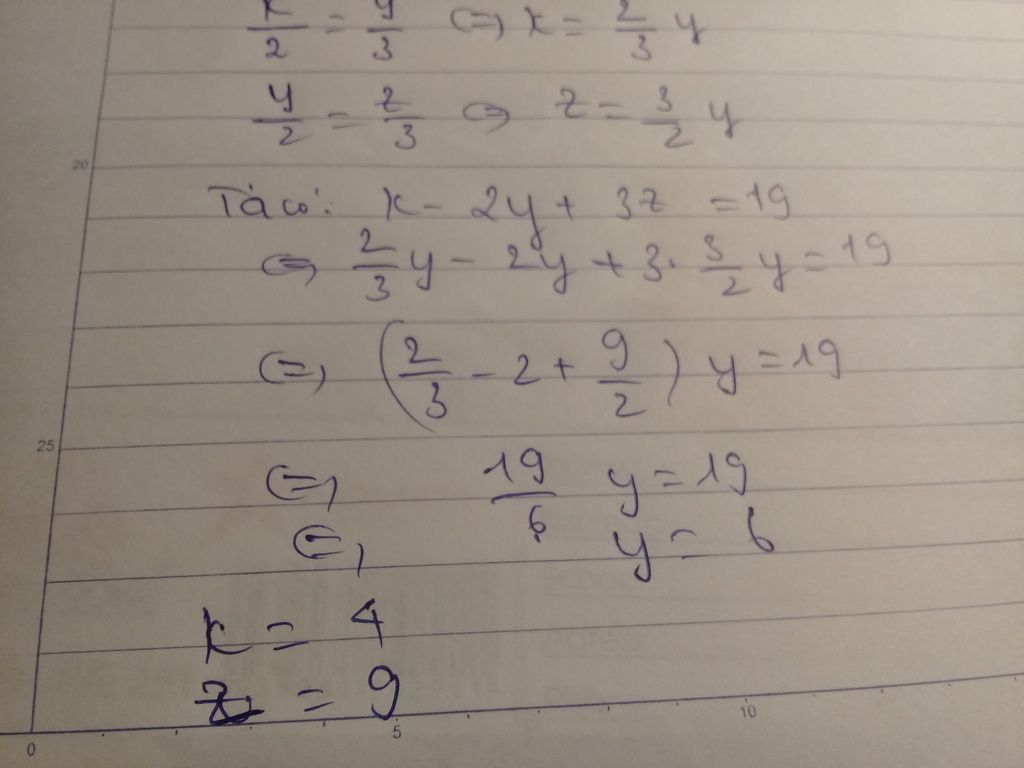 x/2 = y/3 (=) x = 2/3 y
y/2 = z/3 (=) z = 3/2 y
20
Ta có: x - 2y + 3z = 19
(=) 2/3 y - 2y + 3. 3/2 y = 19
(=) (2/3 - 2 + 9/2) y = 19
25
(=) 19/6 y = 19
(=) y = 6
x = 4
z = 9
0 5 10